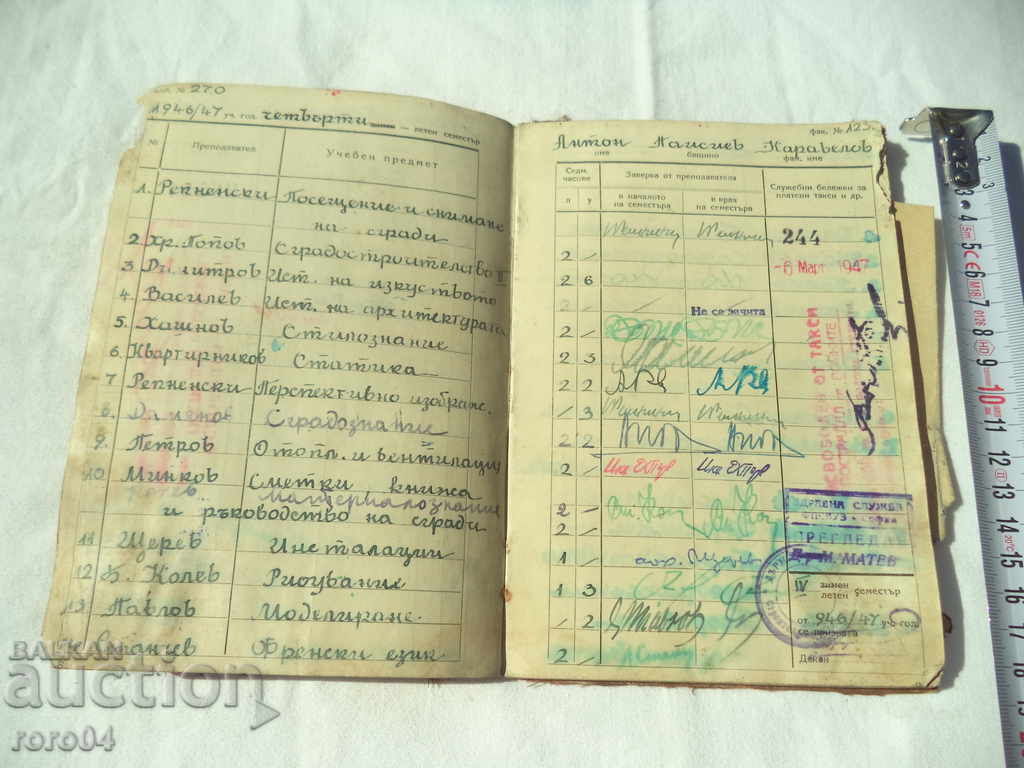 № 270
1946/47 уч. год. четвърти — летен семестър
№ Преподавател Учебен предмет
1. Репненски Посещение и снимане
на сгради
2. Хр. Попов Градостроителство II
3. Димитров Ист. на изкуството
4. Василев Ист. на архитектурата
5. Хашнов Стилознание
6. Квартирников Статика
7 Репненски Перспективно изображ.
8. Дамянов Сградознание
9. Петров Отопл. и вентилация
10 Минков Сметки книжа
материалознание
и ръководство на сгради
11 Щерев Инсталации
12 Б. Колев Рисуване
13 Павлов Моделиране.
Френски език
фак. № 123.
Антон Паисиев Каравелов
име бащино фам. име
Седм. часове
Заверка от преподавателя
Служебни бележки за
платени такси и др.
п у
в началото
на семестъра
в края
на семестъра
244
2
-6 Март 1947
2 6
Не се зачита
2
2 3
СВОБОДЕН ОТ ТАКСИ
2 2
3
2 2
2
2
ЗДРАВНА СЛУЖБА
2
ПРЕГЛЕДАН
1 арх. Щерев
Д-Р М. МАТЕВ
1 3
IV зимен
летен семестър
2
от 946/47 уч. год.
се признава
2
Декан
BALKAN
auction
roro04
2 3 4 5 6 7 8 9 10 11 12 13 14 15 16 17 18 19